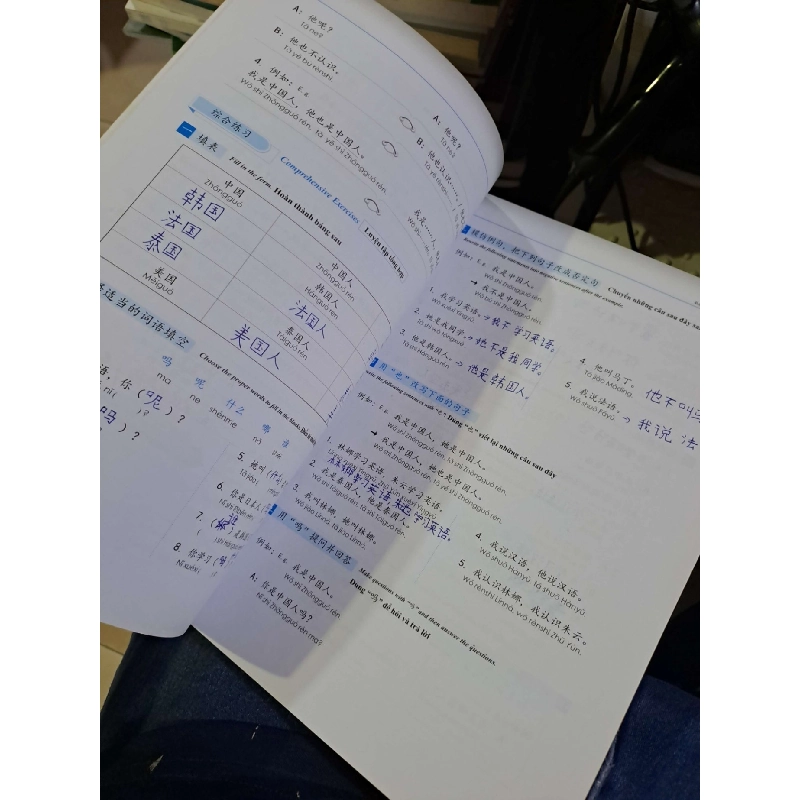 A: 他呢?
Tā ne?
B: 他也不认识。
Tā yě bú rènshi.
4. 例如: E.g.
我是中国人，他也是中国人。
Wǒ shì Zhōngguó rén, tā yě shì Zhōngguó rén.
A: 他呢?
Tā ne?
B: 他也认识
Tā yě rènshi
我是……人
综合练习 Comprehensive Exercises Luyện tập tổng hợp
一 填表 Fill in the form. Hoàn thành bảng sau
中国
Zhōngguó
中国人
Zhōngguó rén
韩国
韩国人
Hánguó rén
法国
法国人
泰国
泰国人
Tàiguó rén
美国
Měiguó
美国人
适当的词语填空 Choose the proper words to fill in the blanks
吗 呢 什么 哪
ma ne shénme nǎ
, 你 (呢)?
nǐ ( )?
吗)?
5. 她叫
Tā jiào
6. 你是日本
Nǐ shì Rìběn
7. (谁
8. 你学习
Nǐ xuéxí
模仿例句，把下列句子改成否定句 Chuyển những câu sau đây
Rewrite the following statements into negative sentences after the example.
例如: E.g. 我是中国人。
Wǒ shì Zhōngguó rén.
→ 我不是中国人。
Wǒ bú shì Zhōngguó rén.
1. 我学习英语。→ 我不学习英语。
Wǒ xuéxí Yīngyǔ.
2. 她是我同学。→ 她不是我同学。
Tā shì wǒ tóngxué.
3. 他是韩国人。→ 他是韩国人。
Tā shì Hánguó rén.
4. 他叫马丁。 他不叫
Tā jiào Mǎdīng.
5. 我说法语。→ 我说 法
Wǒ shuō Fǎyǔ.
用“也”改写下面的句子
Rewrite the following sentences with "也". Dùng "也" viết lại những câu sau đây
例如: E.g. 我是中国人，他是中国人。
Wǒ shì Zhōngguó rén, tā shì Zhōngguó rén.
→ 我是中国人，他也是中国人。
Wǒ shì Zhōngguó rén, tā yě shì Zhōngguó rén.
1. 林娜学习英语，朱云学习英语。
林娜学习英语 朱云也学习英语。
2. 我是泰国人，他是泰国人。
Wǒ shì Tàiguó rén, tā shì Tàiguó rén.
3. 我叫林娜，她叫林娜。
Wǒ jiào Línnà, tā jiào Línnà.
4. 我说汉语，他说汉语。
Wǒ shuō Hànyǔ, tā shuō Hànyǔ.
5. 我认识林娜，我认识朱云。
Wǒ rènshi Línnà, wǒ rènshi Zhū Yún.
用“吗”提问并回答 Make questions with "吗" and then answer the questions.
Dùng "吗" để hỏi và trả lời
例如: E.g. 我是中国人。
Wǒ shì Zhōngguó rén.
A: 你是中国人吗?
Nǐ shì Zhōngguó rén ma?